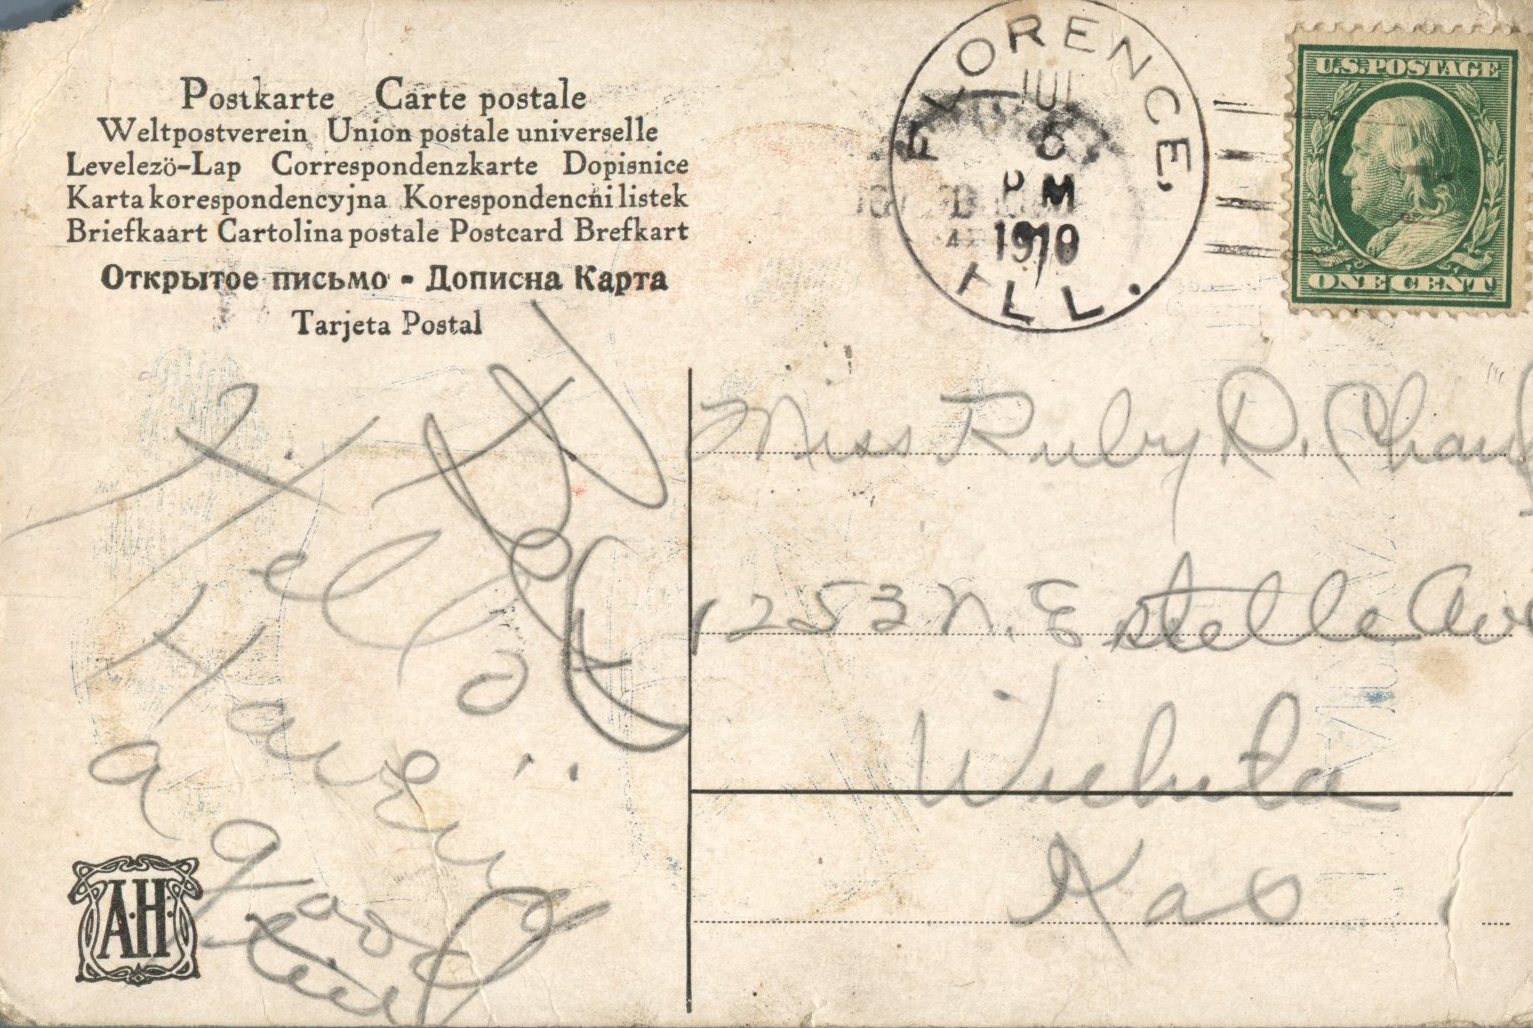 Postkarte Carte postale
Weltpostverein Union postale universelle
Levelezö-Lap Correspondenzkarte Dopisnice
Karta korespondencyjna Korespondencni listek
Briefkaart Cartolina postale Postcard Brefkart
Открытое письмо - Дописна Карта
Tarjeta Postal
FLORENCE,
JUL
6
PM
1910
ILL.
U.S. POSTAGE
ONE CENT
Miss Ruby D.
1253 N. Estelle Ave
Wichita
Kas
Hello
Having
a good
time
A.H.